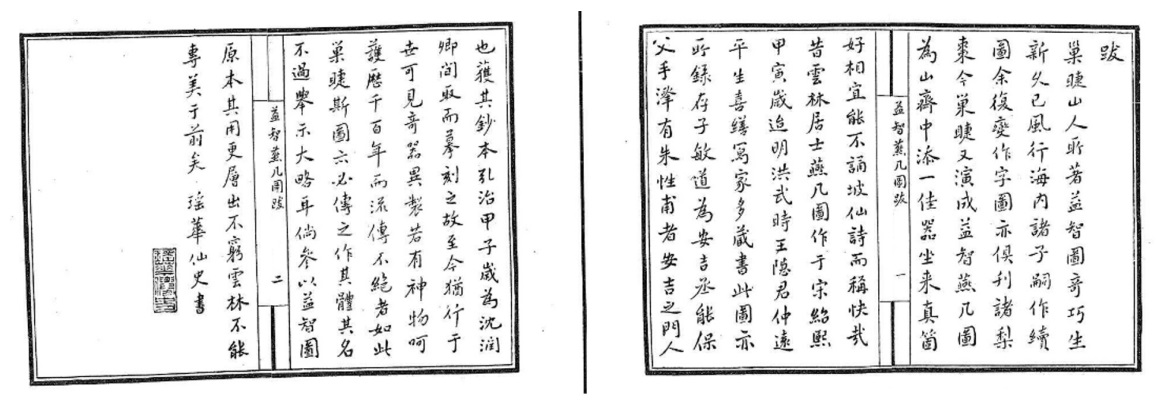 跋
巢睫山人所著益智圖奇巧生
新久已風行海内諸子嗣作續
圖余復變作字圖亦俱刋諸梨
棗今巢睫又演成益智燕几圖
為山齋中添一佳器坐来真箇
益智燕几圖跋 一
好相宜能不誦坡仙詩而稱快哉
昔雲林居士燕几圖作于宋紹熙
甲寅歲迨明洪武時王隐君仲遠
平生喜繕寫家多蔵書此圖亦
所錄存子敏道為安吉丞能保
父手澤有朱性甫者安吉之門人
也獲其鈔本弘治甲子歲為沈潤
卿間取而摹刻之故至今猶行于
世可見奇器異製若有神物呵
護歷千百年而流傳不絶者如此
巢睫斯圖亦必傳之作其體其名
不過舉示大略耳倘參以益智圖
益智燕几圖跋 二
原本其用更層出不窮雲林不能
專美于前矣 瑤華仙史書